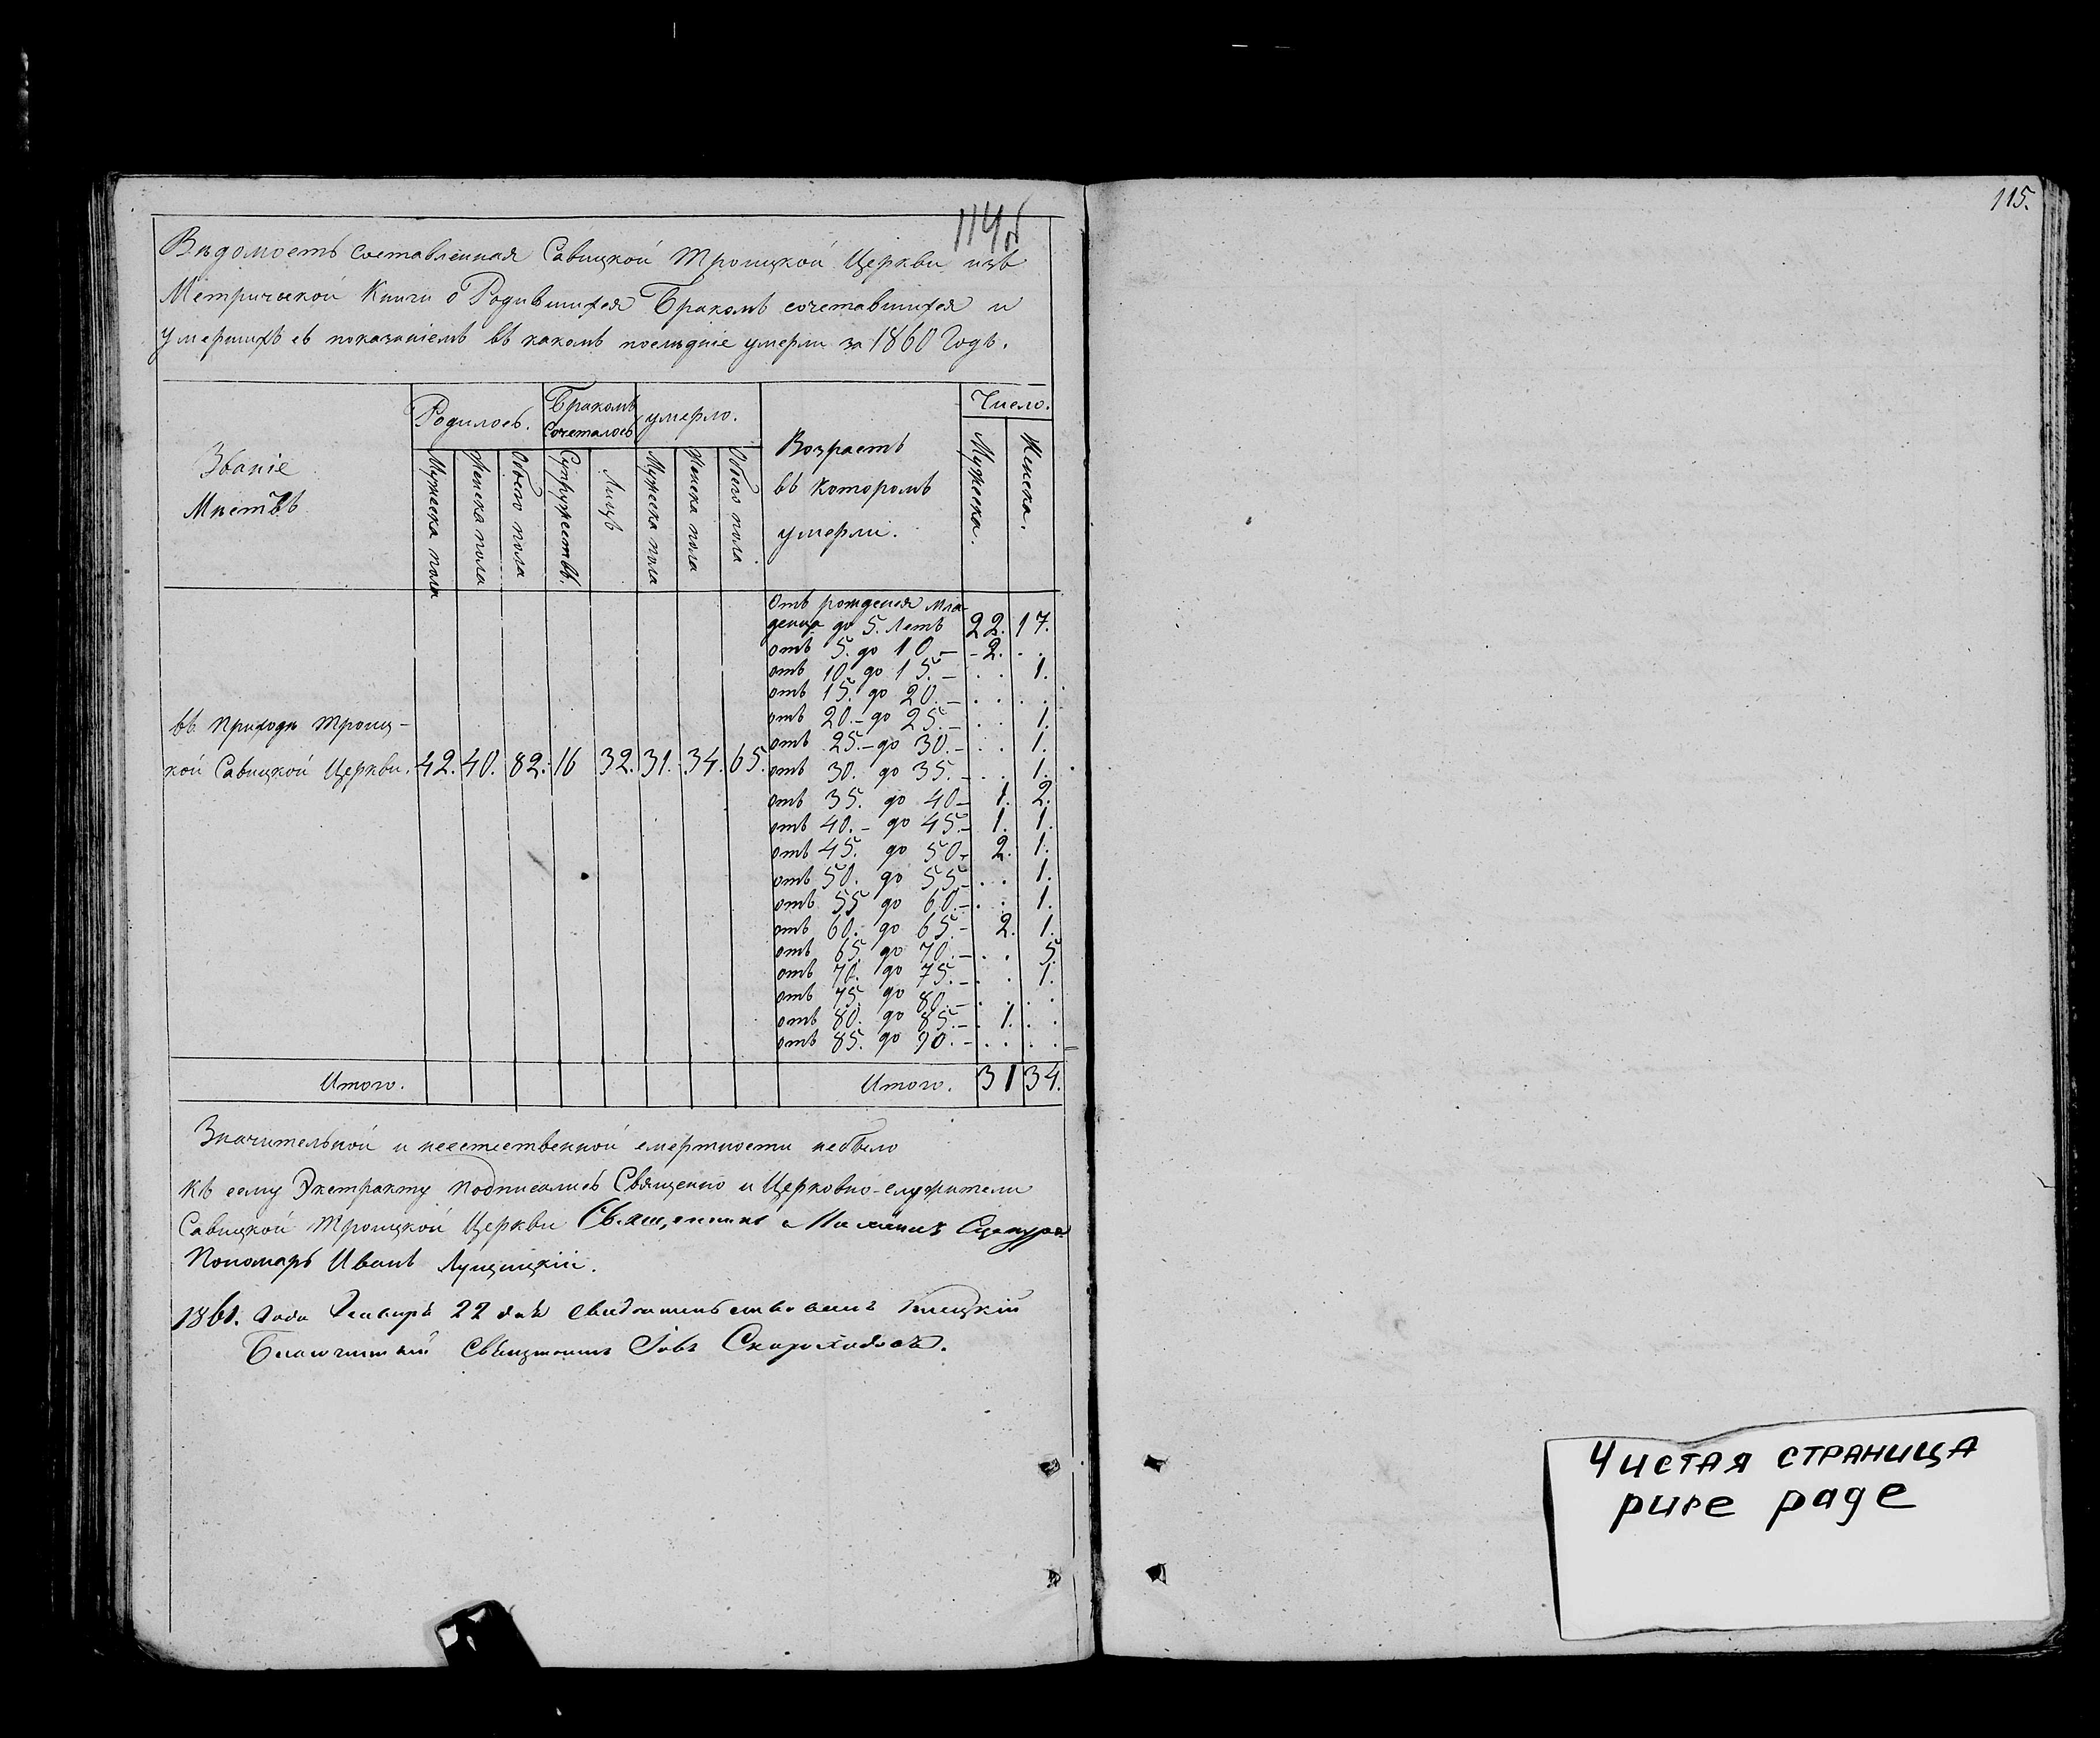 114б
115.
Вѣдомость составленная Савицкой Троицкой Церкви изъ
Метрической Книги о Родившихся Бракомъ сочетавшихся и
умершихъ съ показаніемъ въ какомъ послѣдніе умерли за 1860 Годъ.
Званіе Мѣстъ
Родилось. Бракомъ Сочеталось умерло.
Возрастъ въ которомъ умерли.
Число.
Мужеска пола Женска пола Обоего пола Супружествъ. Лицъ Мужеска пола Женска пола Обоего пола Мужеска. Женска.
Отъ рожденія мла-
денца до 5. Летъ 22. 17.
отъ 5. до 10.— - 2. . .
отъ 10 до 15.— . . 1.
отъ 15. до 20.— . . . .
отъ 20.– до 25.— . . 1.
отъ 25.– до 30.— . . 1.
отъ 30. до 35.— . . 1.
отъ 35. до 40— 1. 2.
отъ 40.– до 45.— 1. 1.
отъ 45. до 50— 2. 1.
отъ 50. до 55— . . 1.
отъ 55 до 60.— . . 1.
отъ 60. до 65.— 2. 1.
отъ 65. до 70.— . . 5
отъ 70. до 75.— . . 1.
отъ 75. до 80.— . . . .
отъ 80. до 85.— . 1. . .
отъ 85. до 90.— . . . .
въ приходѣ Троиц-
кой Савицкой Церкви. 42. 40. 82. 16 32. 31. 34. 65.
Итого. Итого. 31 34.
Значительной и неестественной смертности небыло
Къ сему Экстракту подписались Священно и Церковно-служители
Савицкой Троицкой Церкви Священникъ
Пономарь Иванъ Лущицкій.
1861. Года Генваря 22 дня свидѣтельствовалъ
Благочинный Священникъ Іовъ Скороходовъ.
Чистая страница
pure page